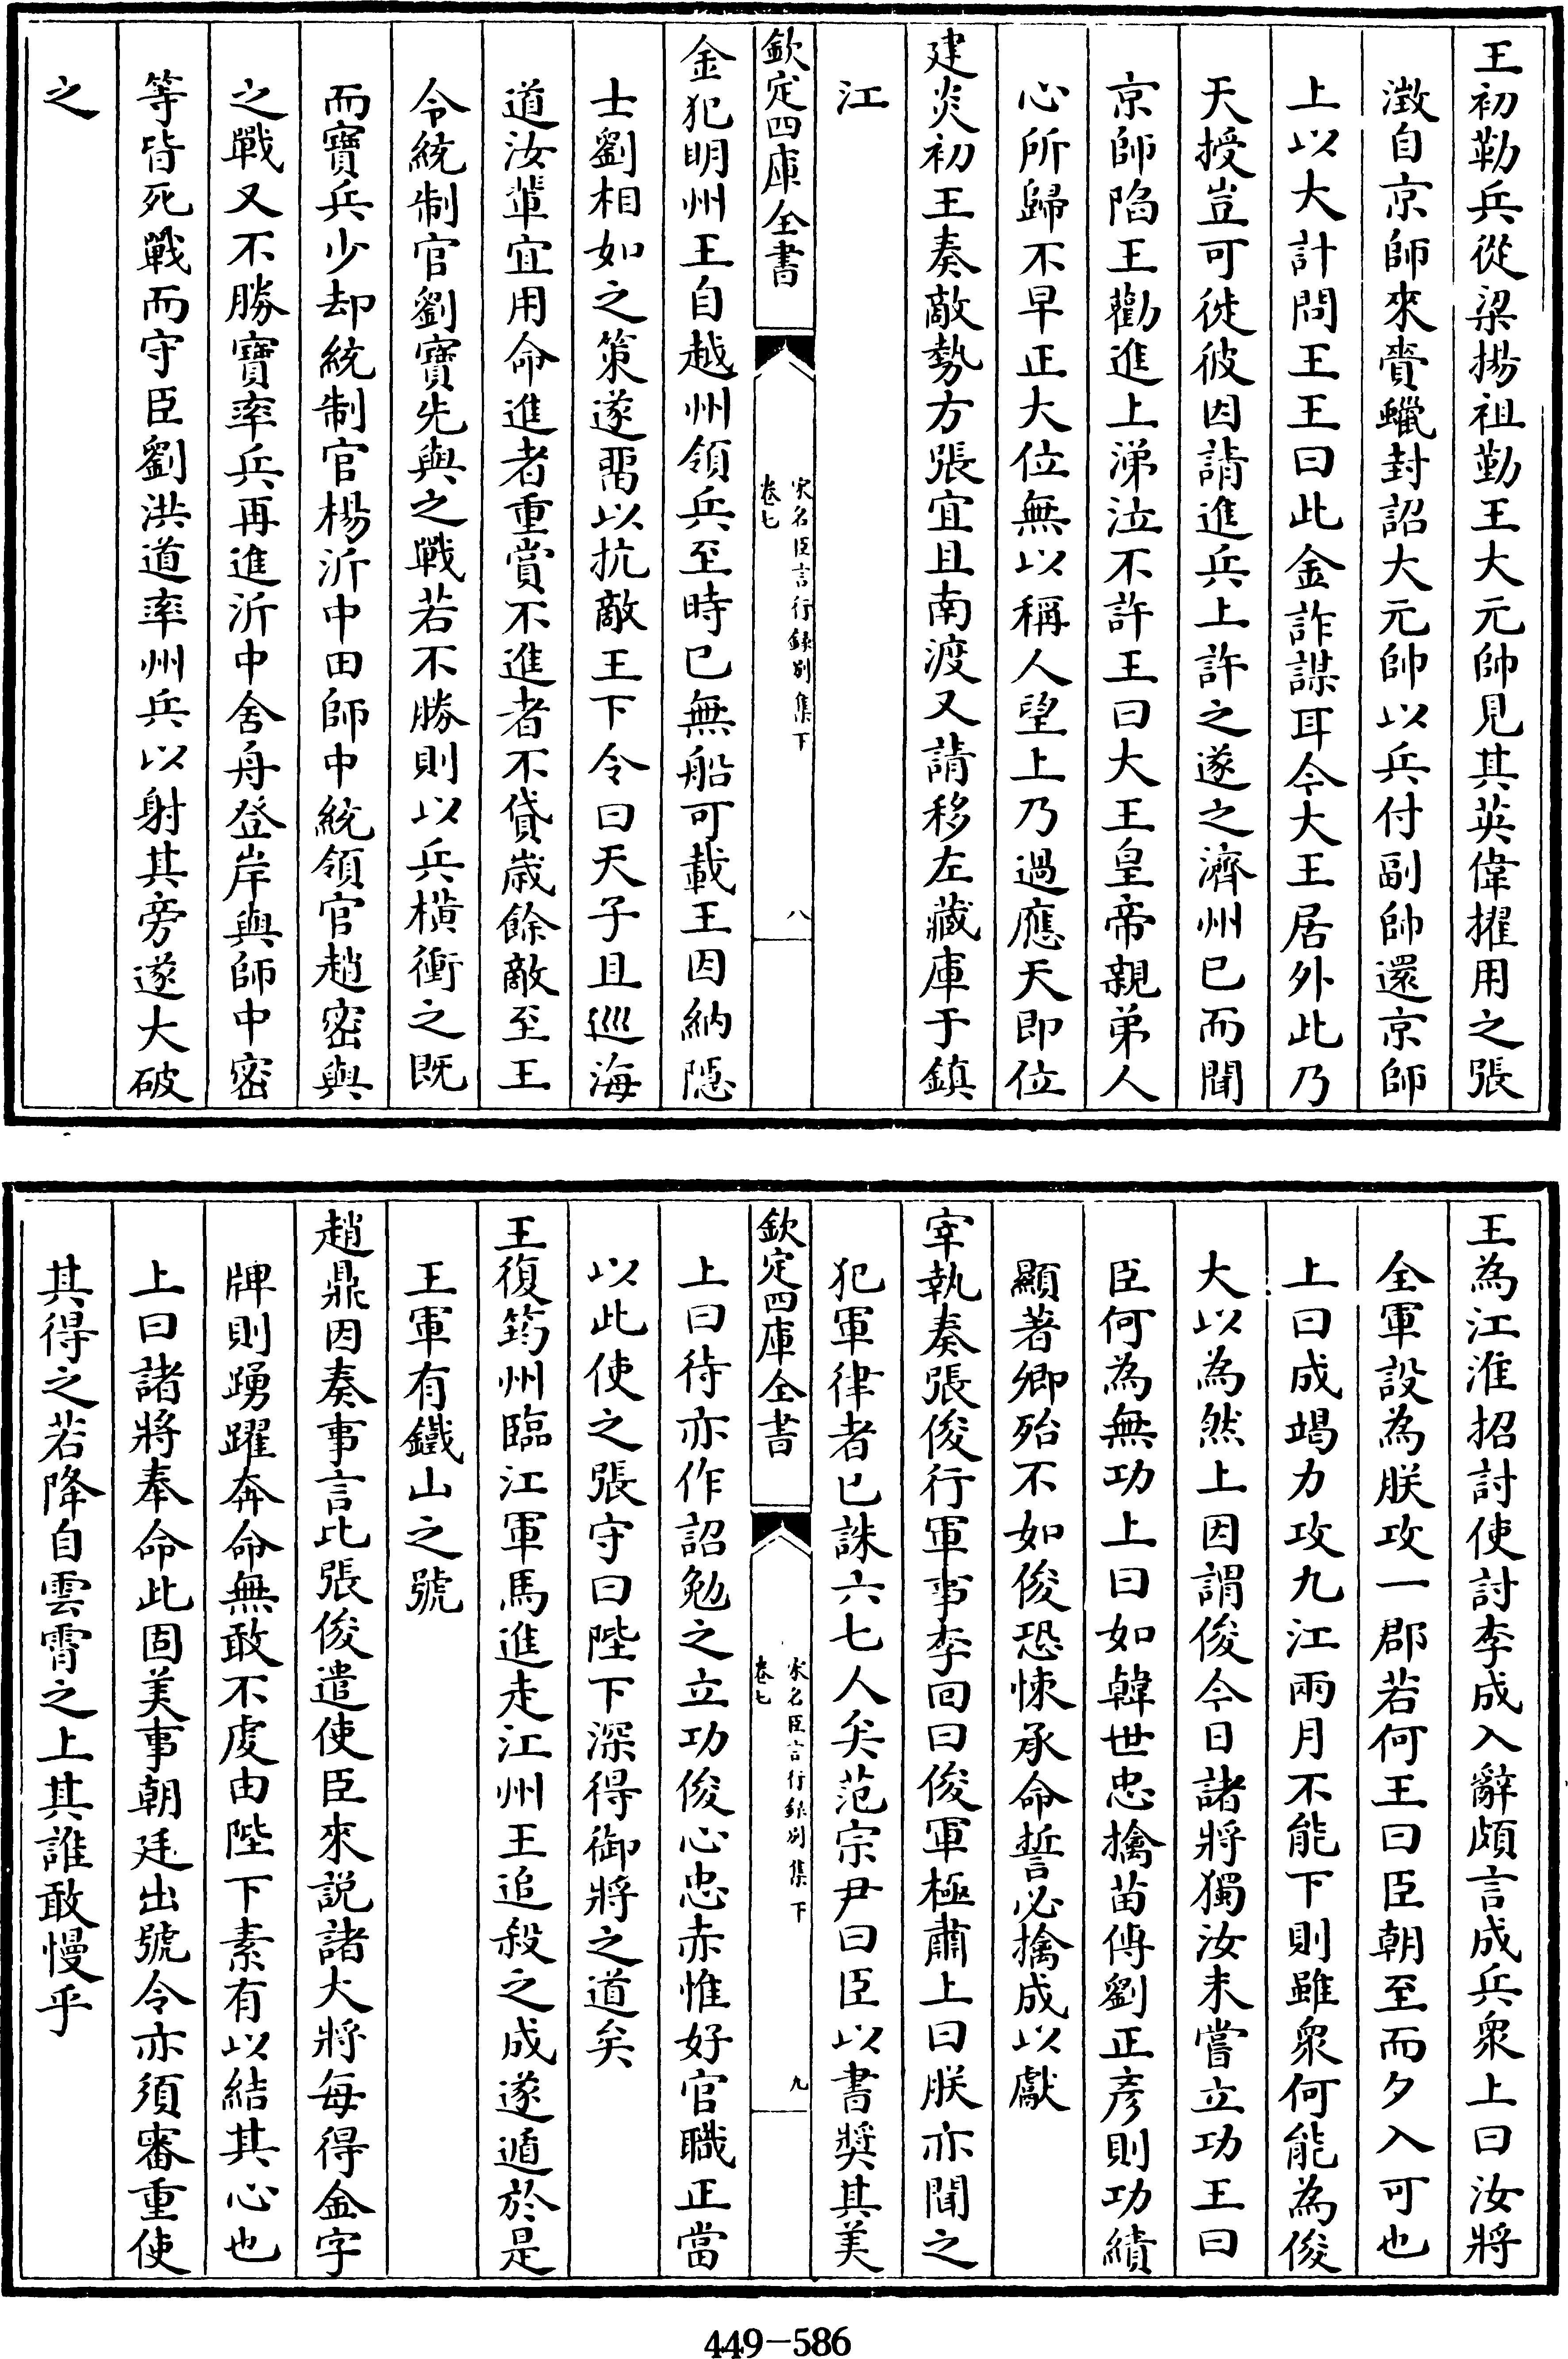 王初勒兵從梁揚祖勤王大元帥見其英偉擢用之張
澂自京師來賫蠟封詔大元帥以兵付副帥還京師
上以大計問王王曰此金詐謀耳今大王居外此乃
天授豈可徙彼因請進兵上許之遂之濟州已而聞
京師陷王勸進上涕泣不許王曰大王皇帝親弟人
心所歸不早正大位無以稱人望上乃過應天即位
建炎初王奏敵勢方張宜且南渡又請移左藏庫于鎮
江
欽定四庫全書
宋名臣言行録别集下
卷七
八
金犯明州王自越州領兵至時已無船可載王因納隠
士劉相如之策遂畱以抗敵王下令曰天子且巡海
道汝輩宜用命進者重賞不進者不貸歲餘敵至王
令統制官劉寶先與之戰若不勝則以兵横衝之既
而寶兵少却統制官楊沂中田師中統領官趙密與
之戰又不勝寶率兵再進沂中舍舟登岸與師中密
等皆死戰而守臣劉洪道率州兵以射其旁遂大破
之
王為江淮招討使討李成入辭頗言成兵衆上曰汝將
全軍設為朕攻一郡若何王曰臣朝至而夕入可也
上曰成竭力攻九江兩月不能下則雖衆何能為俊
大以為然上因謂俊今日諸將獨汝未嘗立功王曰
臣何為無功上曰如韓世忠擒苗傅劉正彦則功績
顯著卿殆不如俊恐悚承命誓必擒成以獻
宰執奏張俊行軍事李回曰俊軍極肅上曰朕亦聞之
犯軍律者已誅六七人矣范宗尹曰臣以書奬其美
欽定四庫全書
宋名臣言行録别集下
卷七
九
上曰待亦作詔勉之立功俊心忠赤惟好官職正當
以此使之張守曰陛下深得御將之道矣
王復筠州臨江軍馬進走江州王追殺之成遂遁於是
王軍有鐵山之號
趙鼎因奏事言比張俊遣使臣來説諸大將每得金字
牌則踴躍奔命無敢不虔由陛下素有以結其心也
上曰諸將奉命此固美事朝廷出號令亦須審重使
其得之若降自雲霄之上其誰敢慢乎
449-586